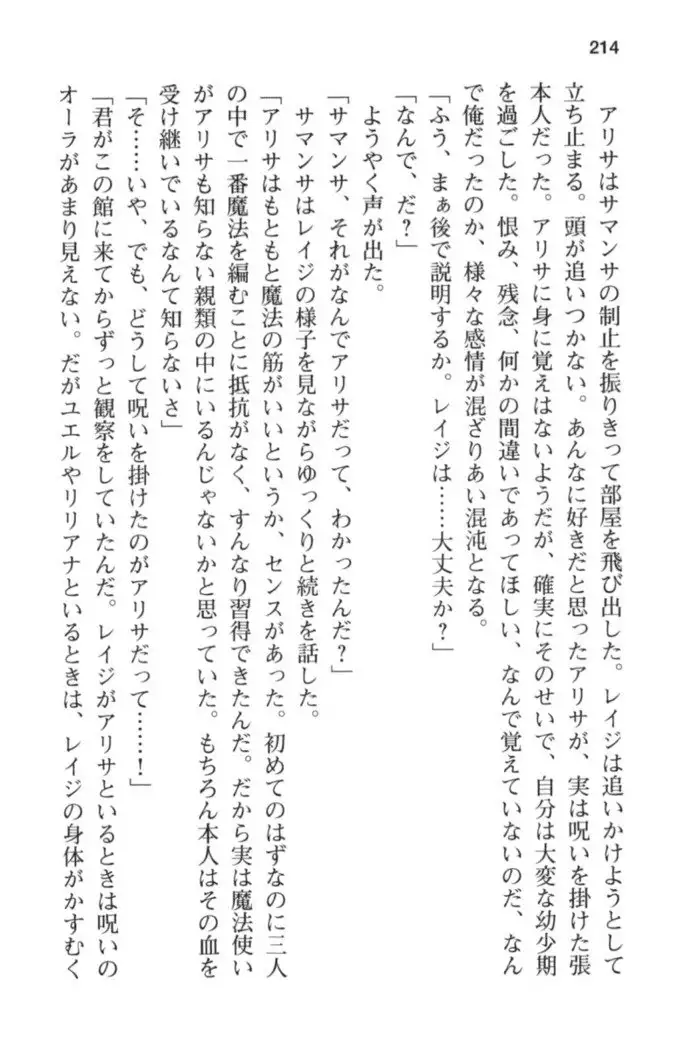 214
アリサはサマンサの制止を振りきって部屋を飛び出した。レイジは追いかけようとして
立ち止まる。頭が追いつかない。あんなに好きだと思ったアリサが、実は呪いを掛けた張
本人だった。アリサに身に覚えはないようだが、確実にそのせいで、自分は大変な幼少期
を過ごした。恨み、残念、何かの間違いであってほしい、なんで覚えていないのだ、なん
で俺だったのか、様々な感情が混ざりあい混沌となる。
「ふう、まぁ後で説明するか。レイジは……大丈夫か?」
「なんで、だ?」
ようやく声が出た。
「サマンサ、それがなんでアリサだって、わかったんだ?」
サマンサはレイジの様子を見ながらゆっくりと続きを話した。
「アリサはもともと魔法の筋がいいというか、センスがあった。初めてのはずなのに三人
の中で一番魔法を編むことに抵抗がなく、すんなり習得できたんだ。だから実は魔法使い
がアリサも知らない親類の中にいるんじゃないかと思っていた。もちろん本人はその血を
受け継いでいるなんて知らないさ」
「そ……いや、でも、どうして呪いを掛けたのがアリサだって……!」
「君がこの館に来てからずっと観察をしていたんだ。レイジがアリサといるときは呪いの
オーラがあまり見えない。だがユエルやリリアナといるときは、レイジの身体がかすむく